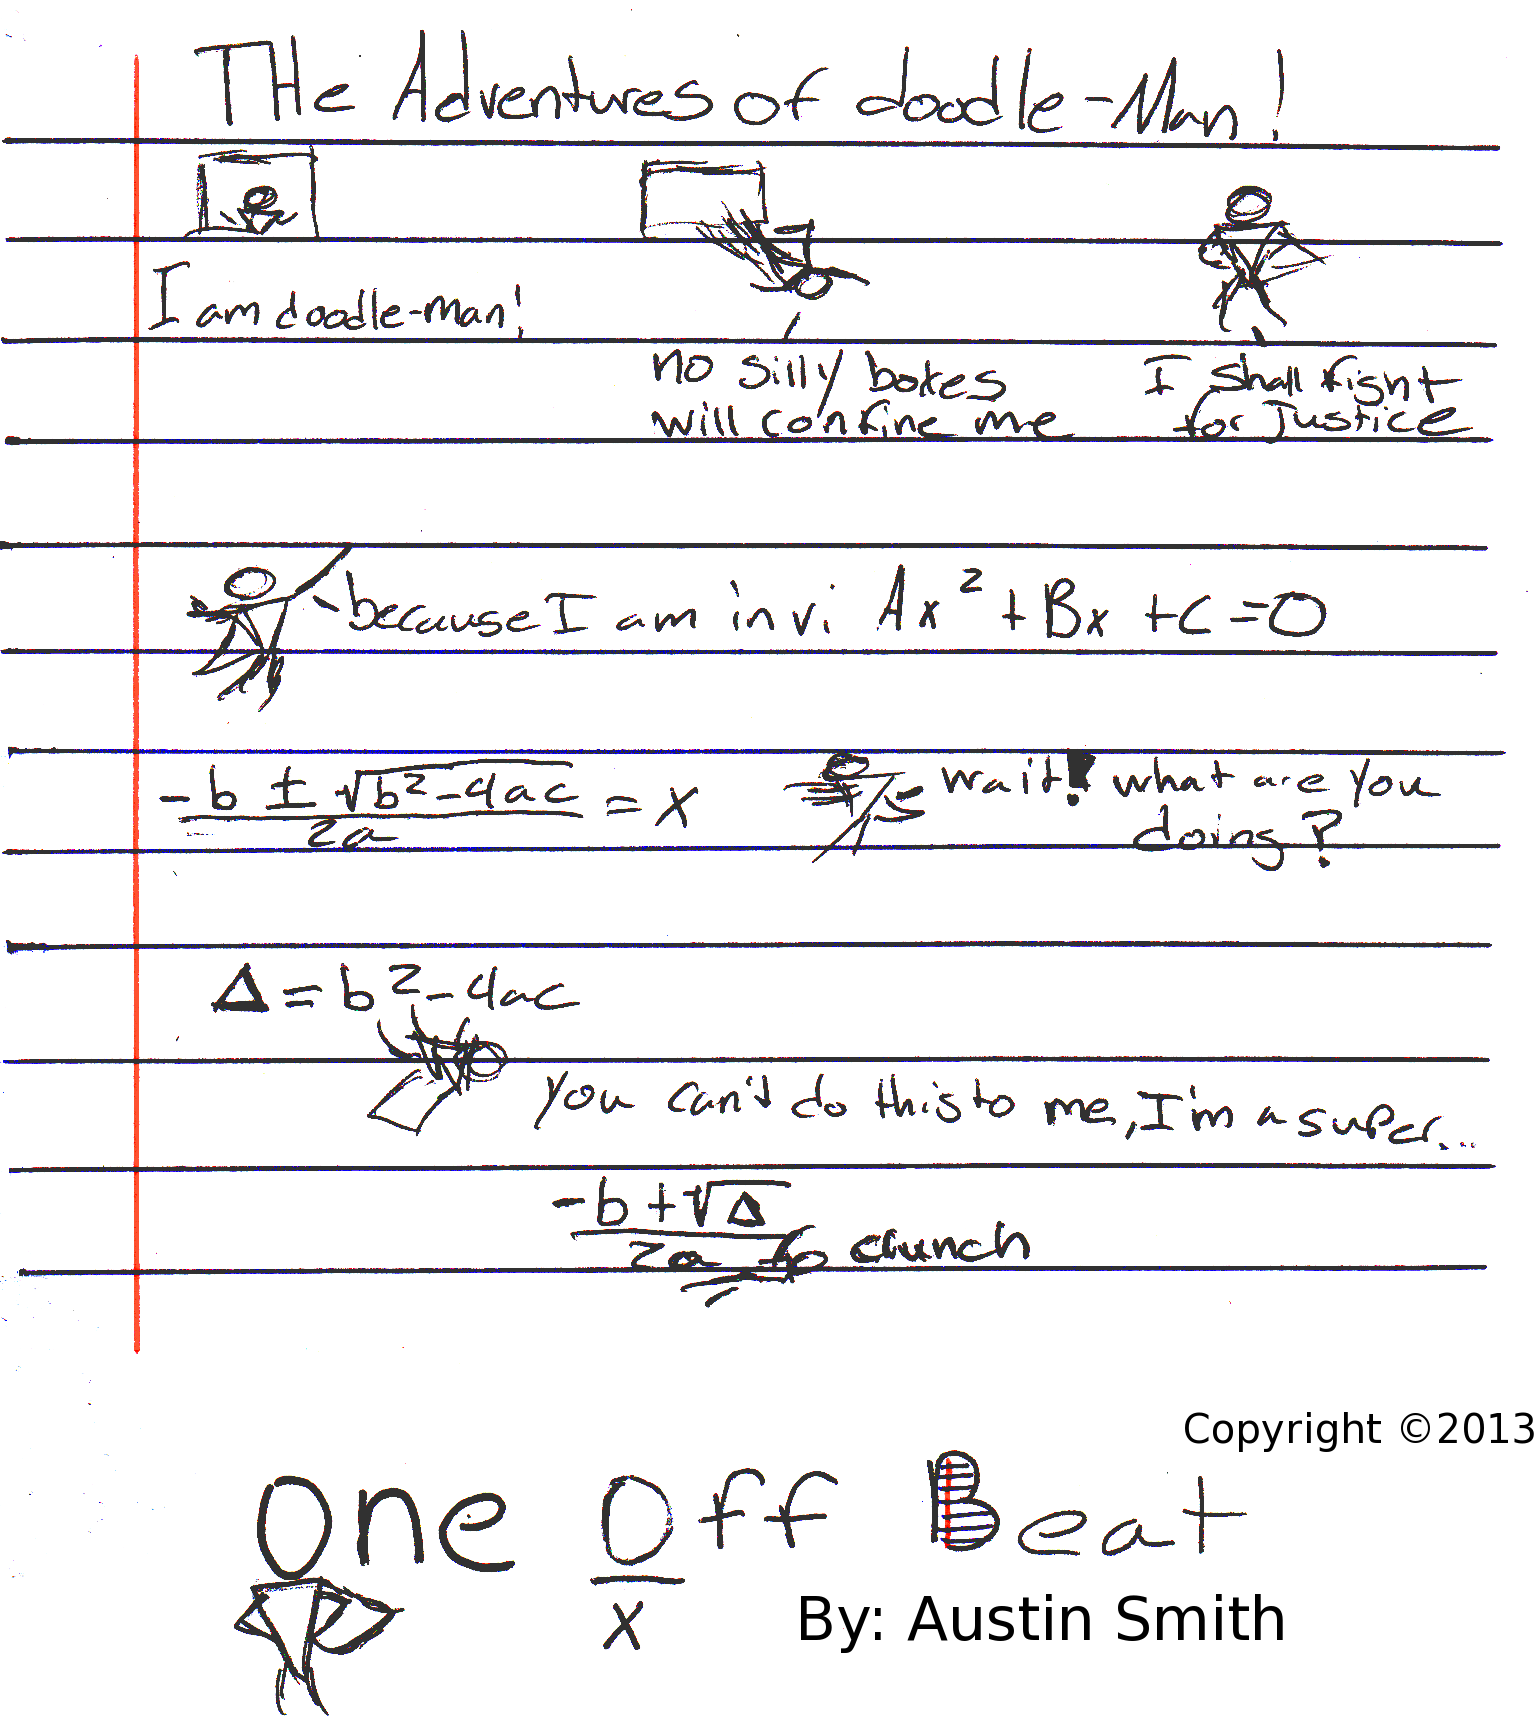 THe Adventures of doodle-Man!
I am doodle-man!
no silly boxes
will confine me
I shall fight
for Justice
because I am invi Ax² + Bx + C = 0
-b ± √b²-4ac = x
2a
wait! what are you
doing?
Δ = b²-4ac
you can't do this to me, I'm a super...
-b + √Δ
2a
crunch
Copyright ©2013
One Off Beat
x
By: Austin Smith